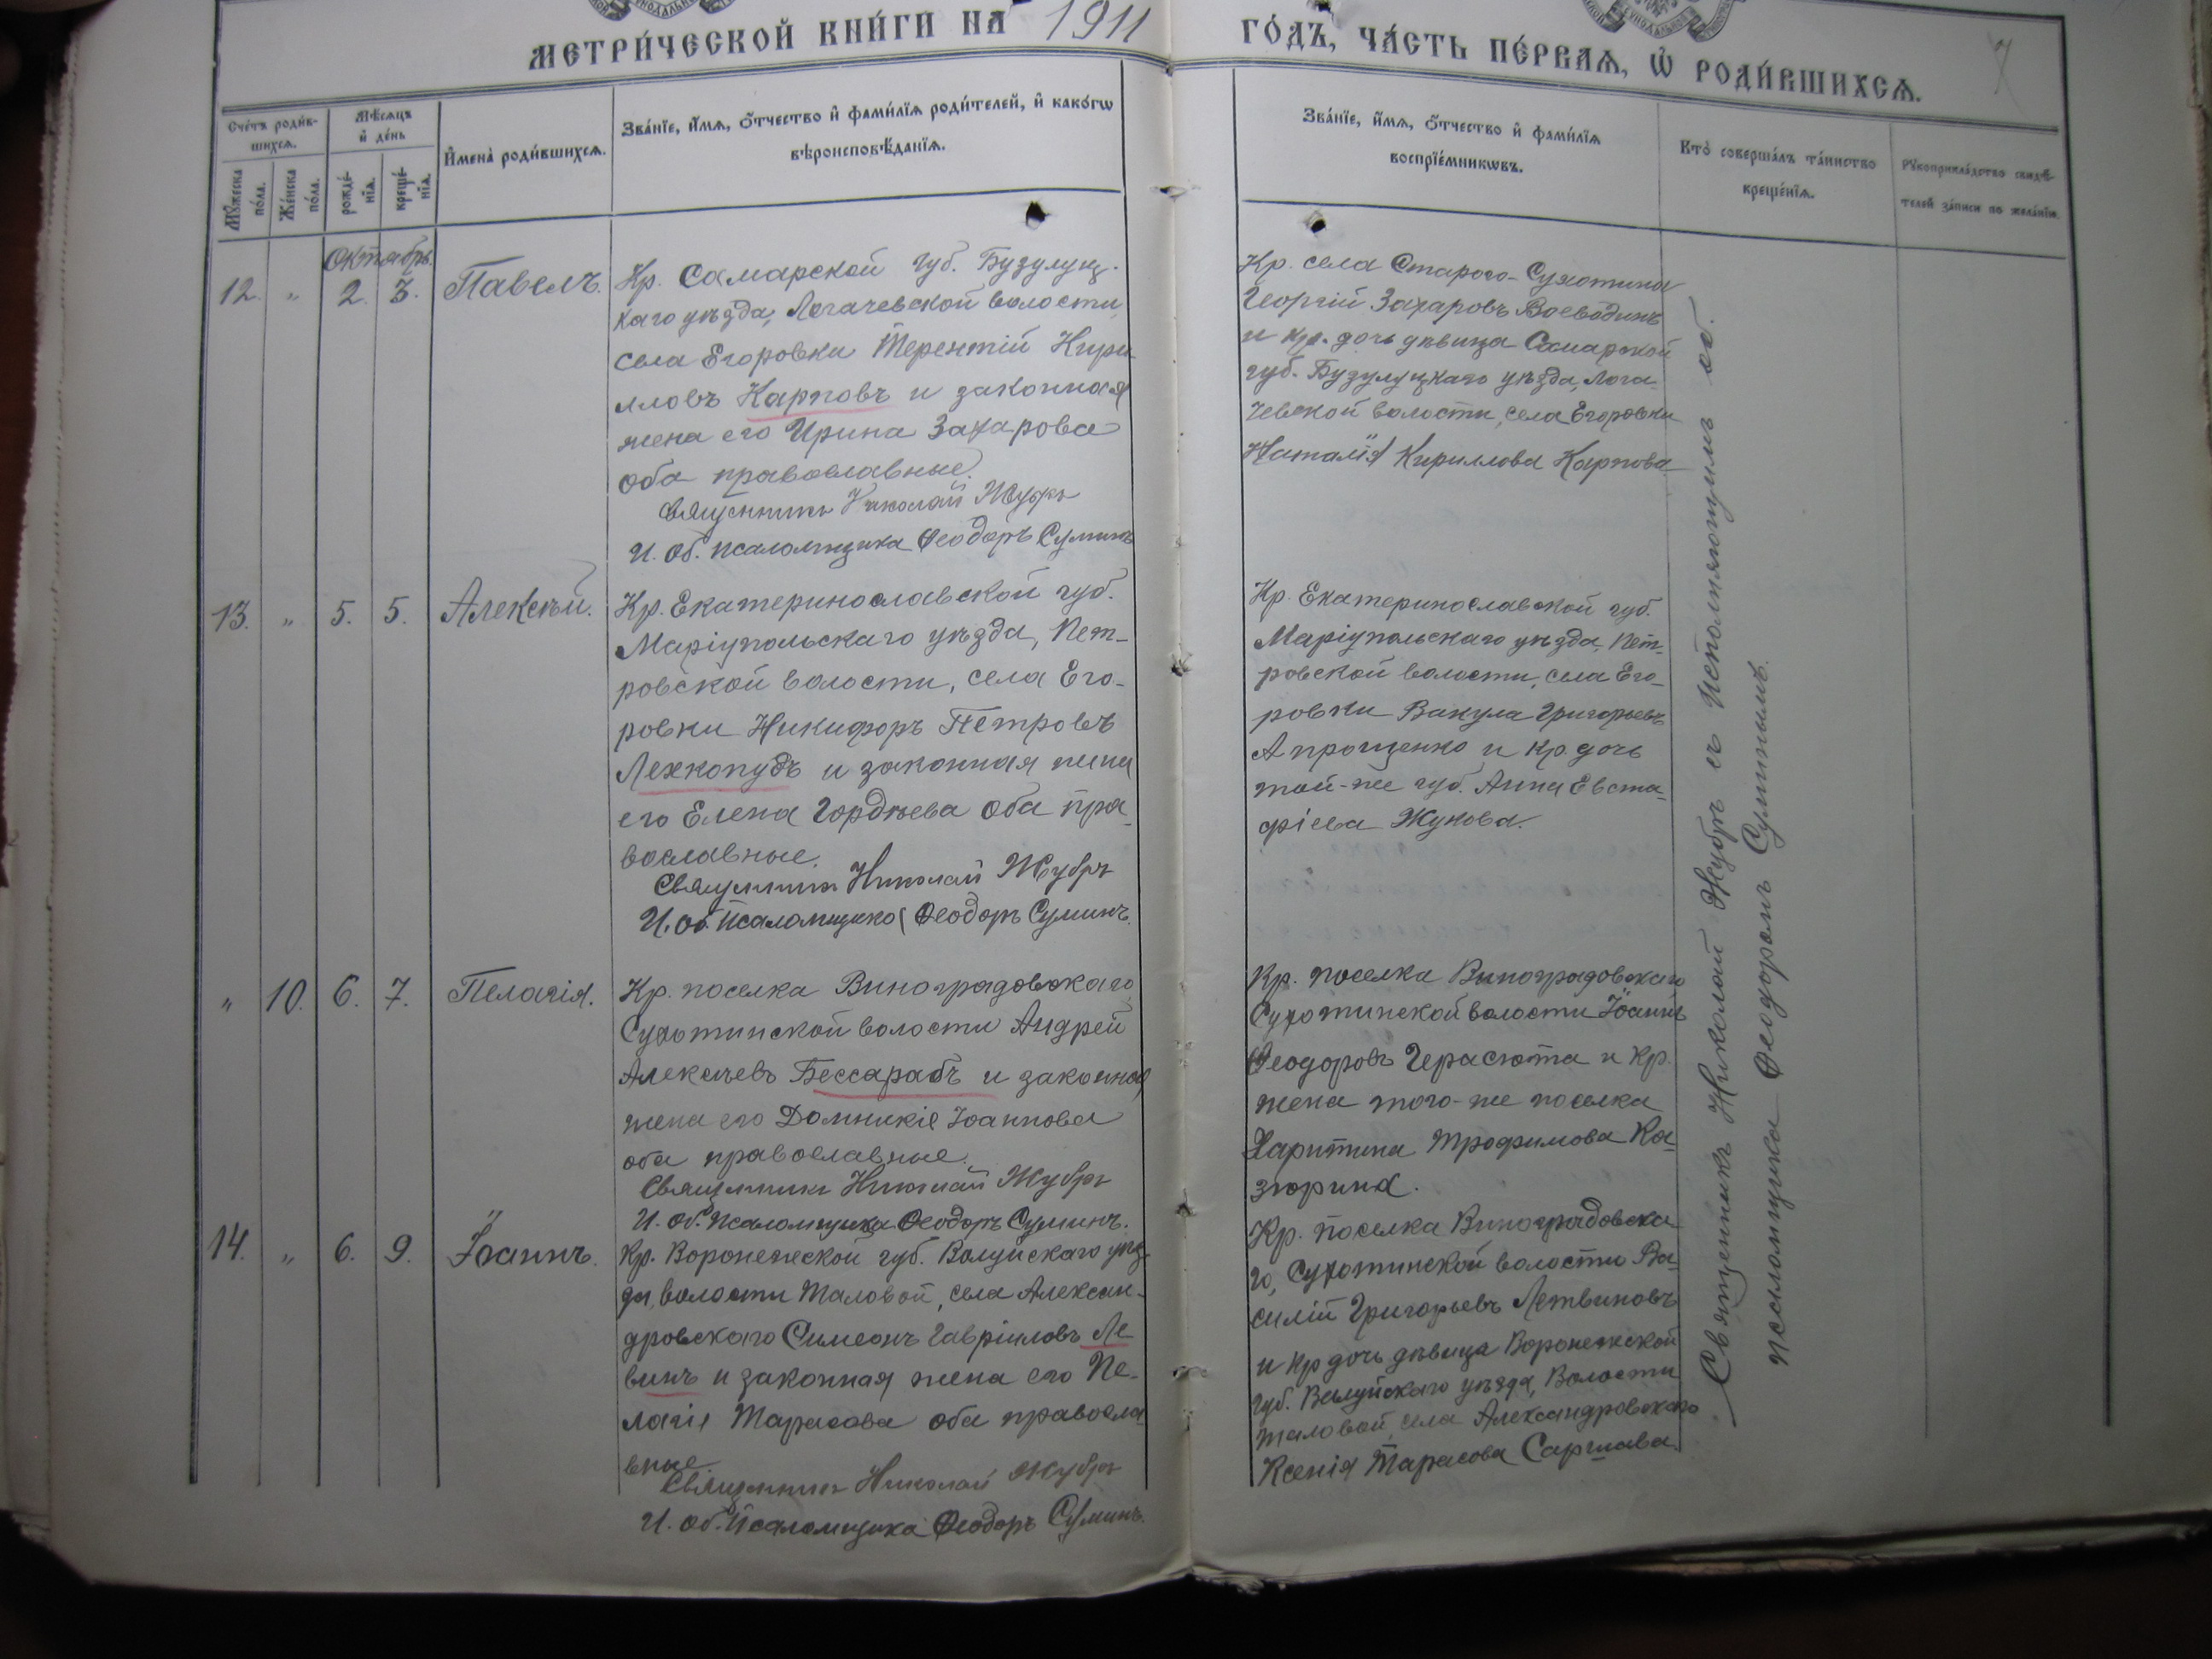 МЕТРИ́ЧЕСКОЙ КНИ́ГИ НА 1911
ГО́ДЪ, ЧА́СТЬ ПЕ́РВАѦ, Ѡ РОДИ́ВШИХСѦ.
7
Сче́тъ роди́в-
шихсѧ.
Мꙋ́жеска по́ла.
Же́нска по́ла.
Мѣ́сѧцъ
и де́нь
рожде́-нїѧ.
креще́-нїѧ.
Имена̀ роди́вшихсѧ.
Зва́нїе, и́мѧ, о́тчество и фами́лїѧ роди́телей, и како́гѡ
вѣроисповѣ́данїѧ.
Зва́нїе, и́мѧ, о́тчество и фами́лїѧ
воспрїе́мникѡвъ.
Кто̀ соверша́лъ та́инство
креще́нїѧ.
Рꙋкоприкла́дство свидѣ́-
телей за́писи по жела́нїю.
Октябрь.
12. " 2. 3. Павелъ.
Кр. Самарской губ. Бузулуц-
каго уѣзда, Логачевской волости,
села Егоровки Терентій Кири-
лловъ Карповъ и законная
жена его Ирина Захарова
оба православные.
Священникъ Николай Жубръ
И. Об. псаломщика Ѳеодоръ Суминъ
Кр. села Старого-Сухотина
Георгій Захаровъ Воеводинъ
и кр. дочь дѣвица Самарской
губ. Бузулуцкаго уѣзда, Лога-
чевской волости, села Егоровки
Наталія Кириллова Карпова
13. " 5. 5. Алексѣй.
Кр. Екатеринославской губ.
Маріупольскаго уѣзда, Пет-
ровской волости, села Его-
ровки Никифоръ Петровъ
Легкопудъ и законная жена
его Елена Гордѣева оба пра-
вославные.
Священникъ Николай Жубръ
И. об. Псаломщика Ѳеодоръ Суминъ.
Кр. Екатеринославской губ.
Маріупольскаго уѣзда, Пет-
ровской волости, села Его-
ровки Вакула Григорьевъ
Апрощенко и кр. дочь
той-же губ. Анна Евста-
фіева Жукова.
" 10. 6. 7. Пелагія.
Кр. поселка Виноградовскаго
Сухотинской волости Андрей
Алексѣевъ Бессарабъ и законная
жена его Домникія Іоаннова
оба православные.
Священникъ Николай Жубръ
И. Об. Псаломщика Ѳеодоръ Суминъ.
Кр. поселка Виноградовскаго
Сухотинской волости Іоаннъ
Ѳеодоровъ Герасюта и кр.
жена того-же поселка
Харитина Трофимова Ка-
зюрина.
14. " 6. 9. Іоаннъ.
Кр. Воронежской губ. Валуйскаго уѣз-
да, волости Таловой, села Алексан-
дровскаго Симеонъ Гавріиловъ Ле-
винъ и законная жена его Пе-
лагія Тарасова оба правосла-
вные
Священникъ Николай Жубръ
И. Об. Псаломщика Ѳеодоръ Суминъ.
Кр. поселка Виноградовска-
го, Сухотинской волости Ва-
силій Григорьевъ Летвиновъ
и кр дочь дѣвица Воронежской
губ. Валуйскаго уѣзда, Волости
Таловой, села Александровскаго
Ксенія Тарасова
Священникъ Николай Жубръ съ исполняющимъ об.
псаломщика Ѳеодоромъ Суминымъ.